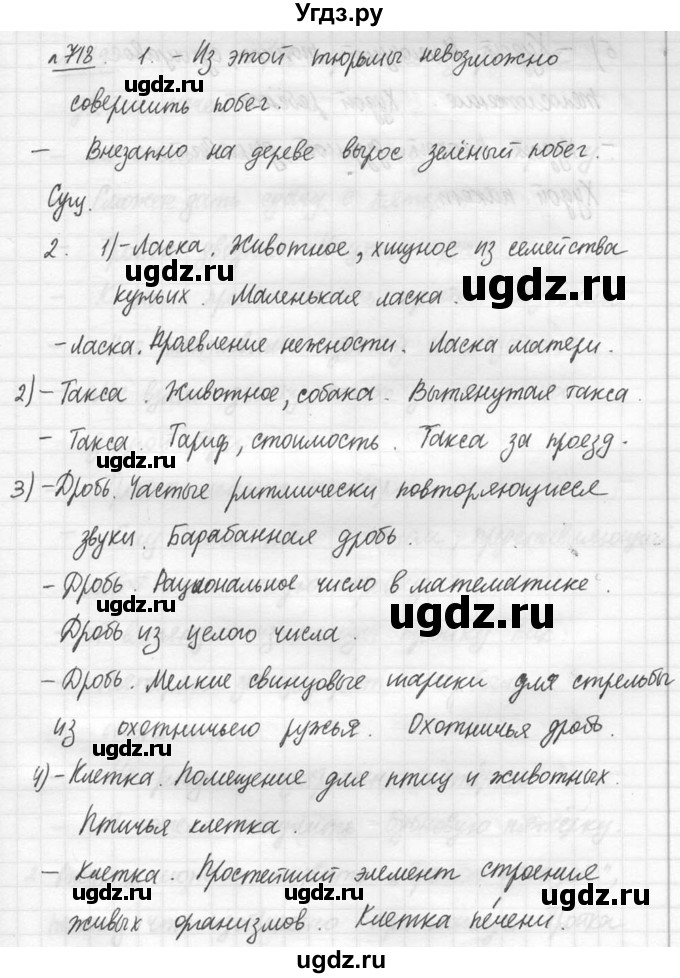 Угдз.ру
п 718. 1. - Из этой тюрьмы невозможно
совершить побег.
- Внезапно на дереве вырос зелёный побег.
Сущ.
2. 1) - Ласка. Животное, хищное из семейства
ugdz.ru
ugdz.ru
куньих. Маленькая ласка.
- Ласка. Проевление нежности. Ласка матери.
2) - Такса. Животное, собака. Вытянутая такса.
- Такса. Тариф, стоимость. Такса за проезд.
ugdz.ru
3) - Дробь. Частые ритмически повторяющиеся
звуки. Барабанная дробь.
- Дробь. Рациональное число в математике.
ugdz.ru
Дробь из целого числа.
- Дробь. Мелкие свинцовые шарики для стрельбы
из охотничьего ружья. Охотничья дробь.
ugdz.ru
4) - Клетка. Помещение для птиц и животных.
Птичья клетка.
- Клетка. Простейший элемент строения
ugdz.ru
ugdz.ru
живых организмов. Клетка печени.
ugdz.ru